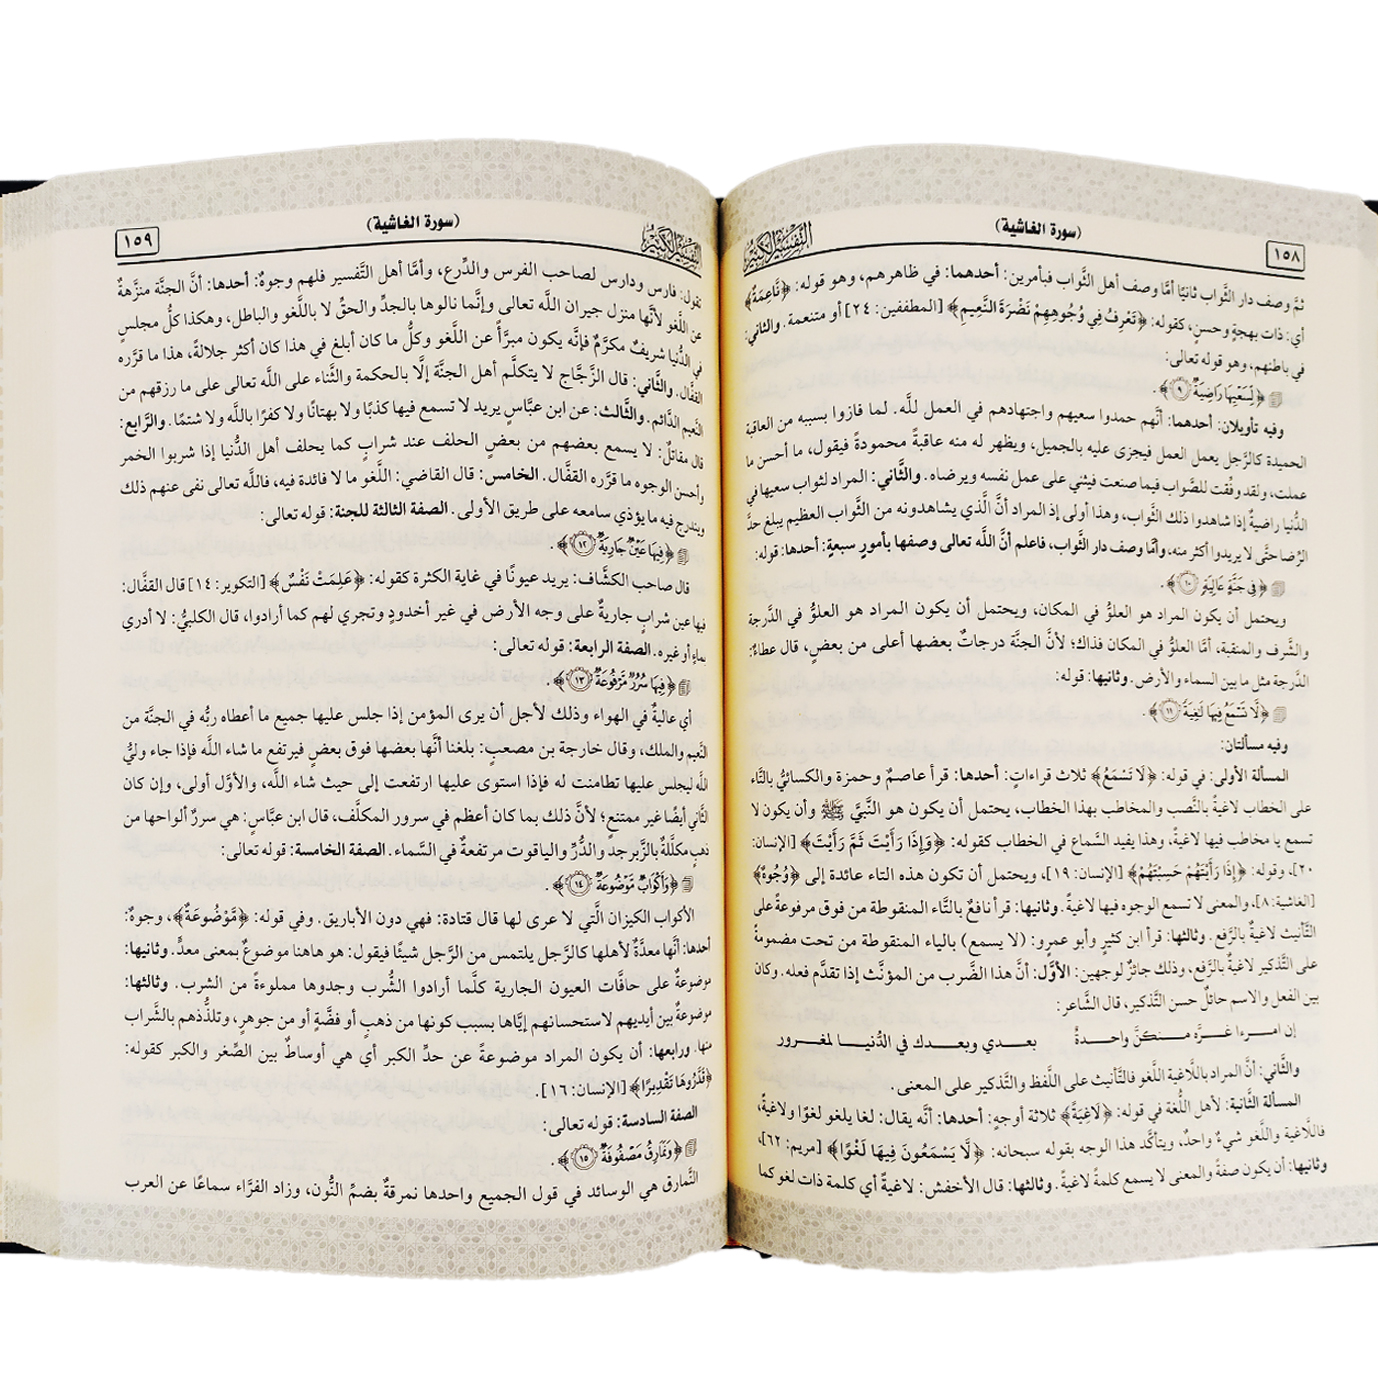 ١٥٨
(سورة الغاشية)
التفسير الكبير
ثمَّ وصف دار الثَّواب ثانيًا أمَّا وصف أهل الثَّواب فبأمرين: أحدهما: في ظاهرهم، وهو قوله: ﴿نَّاعِمَةٌ﴾
أي: ذات بهجةٍ وحسنٍ، كقوله: ﴿تَعْرِفُ فِي وُجُوهِهِمْ نَضْرَةَ النَّعِيمِ﴾ [المطففين: ٢٤] أو متنعمة. والثاني:
في باطنهم، وهو قوله تعالى:
﴿لِّسَعْيِهَا رَاضِيَةٌ ٩﴾.
وفيه تأويلان: أحدهما: أنَّهم حمدوا سعيهم واجتهادهم في العمل للَّه. لما فازوا بسببه من العاقبة
الحميدة كالرَّجل يعمل العمل فيجزى عليه بالجميل، ويظهر له منه عاقبةٌ محمودةٌ فيقول، ما أحسن ما
عملت، ولقد وفِّقت للصَّواب فيما صنعت فيثني على عمل نفسه ويرضاه. والثَّاني: المراد لثواب سعيها في
الدُّنيا راضيةٌ إذا شاهدوا ذلك الثَّواب، وهذا أولى إذ المراد أنَّ الَّذي يشاهدونه من الثَّواب العظيم يبلغ حدَّ
الرِّضا حتَّى لا يريدوا أكثر منه، وأمَّا وصف دار الثَّواب، فاعلم أنَّ اللَّه تعالى وصفها بأمورٍ سبعةٍ: أحدها: قوله:
﴿فِي جَنَّةٍ عَالِيَةٍ ١٠﴾.
ويحتمل أن يكون المراد هو العلوُّ في المكان، ويحتمل أن يكون المراد هو العلوُّ في الدَّرجة
والشَّرف والمنقبة، أمَّا العلوُّ في المكان فذاك؛ لأنَّ الجنَّة درجاتٌ بعضها أعلى من بعضٍ، قال عطاءٌ:
الدَّرجة مثل ما بين السماء والأرض. وثانيها: قوله:
﴿لَّا تَسْمَعُ فِيهَا لَٰغِيَةً ١١﴾.
وفيه مسألتان:
المسألة الأولى: في قوله: ﴿لَا تَسْمَعُ﴾ ثلاث قراءاتٍ: أحدها: قرأ عاصمٌ وحمزة والكسائيُّ بالتَّاء
على الخطاب لاغيةً بالنَّصب والمخاطب بهذا الخطاب، يحتمل أن يكون هو النَّبيَّ ﷺ وأن يكون لا
تسمع يا مخاطب فيها لاغيةً، وهذا يفيد السَّماع في الخطاب كقوله: ﴿وَإِذَا رَأَيْتَ ثَمَّ رَأَيْتَ﴾ [الإنسان:
٢٠]، وقوله: ﴿إِذَا رَأَيْتَهُمْ حَسِبْتَهُمْ﴾ [الإنسان: ١٩]، ويحتمل أن تكون هذه التاء عائدة إلى ﴿وُجُوهٌ﴾
[الغاشية: ٨]، والمعنى لا تسمع الوجوه فيها لاغيةً. وثانيها: قرأ نافعٌ بالتَّاء المنقوطة من فوق مرفوعةً على
التَّأنيث لاغيةٌ بالرَّفع. وثالثها: قرأ ابن كثيرٍ وأبو عمرٍو: (لا يسمع) بالياء المنقوطة من تحت مضمومةً
على التَّذكير لاغيةٌ بالرَّفع، وذلك جائزٌ لوجهين: الأوَّل: أنَّ هذا الضَّرب من المؤنَّث إذا تقدَّم فعله. وكان
بين الفعل والاسم حائلٌ حسن التَّذكير، قال الشَّاعر:
إن امرءا غرَّه منكنَّ واحدةٌ بعدي وبعدك في الدُّنيا لمغرور
والثَّاني: أنَّ المراد باللَّاغية اللَّغو فالتَّأنيث على اللَّفظ والتَّذكير على المعنى.
المسألة الثَّانية: لأهل اللُّغة في قوله: ﴿لَاغِيَةً﴾ ثلاثة أوجهٍ: أحدها: أنَّه يقال: لغا يلغو لغوًا ولاغيةً،
فاللَّاغية واللَّغو شيءٌ واحدٌ، ويتأكَّد هذا الوجه بقوله سبحانه: ﴿لَّا يَسْمَعُونَ فِيهَا لَغْوًا﴾ [مريم: ٦٢]،
وثانيها: أن يكون صفةً والمعنى لا يسمع كلمةً لاغيةً. وثالثها: قال الأخفش: لاغيةٌ أي كلمة ذات لغو كما
التفسير الكبير
(سورة الغاشية)
١٥٩
تقول: فارس ودارس لصاحب الفرس والدِّرع، وأمَّا أهل التَّفسير فلهم وجوهٌ: أحدها: أنَّ الجنَّة منزَّهةٌ
عن اللَّغو لأنَّها منزل جيران اللَّه تعالى وإنَّما نالوها بالجدِّ والحقِّ لا باللَّغو والباطل، وهكذا كلُّ مجلسٍ
في الدُّنيا شريفٌ مكرَّمٌ فإنَّه يكون مبرَّأً عن اللَّغو وكلُّ ما كان أبلغ في هذا كان أكثر جلالةً، هذا ما قرَّره
القفَّال. والثَّاني: قال الزَّجَّاج لا يتكلَّم أهل الجنَّة إلَّا بالحكمة والثَّناء على اللَّه تعالى على ما رزقهم من
النَّعيم الدَّائم. والثَّالث: عن ابن عبَّاسٍ يريد لا تسمع فيها كذبًا ولا بهتانًا ولا كفرًا باللَّه ولا شتمًا. والرَّابع:
قال مقاتلٌ: لا يسمع بعضهم من بعضٍ الحلف عند شرابٍ كما يحلف أهل الدُّنيا إذا شربوا الخمر
وأحسن الوجوه ما قرَّره القفَّال. الخامس: قال القاضي: اللَّغو ما لا فائدة فيه، فاللَّه تعالى نفى عنهم ذلك
ويندرج فيه ما يؤذي سامعه على طريق الأولى. الصفة الثالثة للجنة: قوله تعالى:
﴿فِيهَا عَيْنٌ جَارِيَةٌ ١٢﴾.
قال صاحب الكشَّاف: يريد عيونًا في غاية الكثرة كقوله: ﴿عَلِمَتْ نَفْسٌ﴾ [التكوير: ١٤] قال القفَّال:
فيها عين شرابٍ جاريةٌ على وجه الأرض في غير أخدودٍ وتجري لهم كما أرادوا، قال الكلبيُّ: لا أدري
بماءٍ أو غيره. الصفة الرابعة: قوله تعالى:
﴿فِيهَا سُرُرٌ مَّرْفُوعَةٌ ١٣﴾.
أي عاليةٌ في الهواء وذلك لأجل أن يرى المؤمن إذا جلس عليها جميع ما أعطاه ربُّه في الجنَّة من
النَّعيم والملك، وقال خارجة بن مصعبٍ: بلغنا أنَّها بعضها فوق بعضٍ فيرتفع ما شاء اللَّه فإذا جاء وليُّ
اللَّه ليجلس عليها تطامنت له فإذا استوى عليها ارتفعت إلى حيث شاء اللَّه، والأوَّل أولى، وإن كان
الثَّاني أيضًا غير ممتنعٍ؛ لأنَّ ذلك بما كان أعظم في سرور المكلَّف، قال ابن عبَّاسٍ: هي سررٌ ألواحها من
ذهبٍ مكلَّلةٌ بالزَّبرجد والدُّرِّ والياقوت مرتفعةٌ في السَّماء. الصفة الخامسة: قوله تعالى:
﴿وَأَكْوَابٌ مَّوْضُوعَةٌ ١٤﴾.
الأكواب الكيزان الَّتي لا عرى لها قال قتادة: فهي دون الأباريق. وفي قوله: ﴿مَّوْضُوعَةٌ﴾، وجوهٌ:
أحدها: أنَّها معدَّةٌ لأهلها كالرَّجل يلتمس من الرَّجل شيئًا فيقول: هو هاهنا موضوعٌ بمعنى معدٍّ. وثانيها:
موضوعةٌ على حافَّات العيون الجارية كلَّما أرادوا الشُّرب وجدوها مملوءةً من الشرب. وثالثها:
موضوعةٌ بين أيديهم لاستحسانهم إيَّاها بسبب كونها من ذهبٍ أو فضَّةٍ أو من جوهرٍ، وتلذُّذهم بالشَّراب
منها. ورابعها: أن يكون المراد موضوعةً عن حدِّ الكبر أي هي أوساطٌ بين الصِّغر والكبر كقوله:
﴿قَدَّرُوهَا تَقْدِيرًا﴾ [الإنسان: ١٦].
الصفة السادسة: قوله تعالى:
﴿وَنَمَارِقُ مَصْفُوفَةٌ ١٥﴾.
النَّمارق هي الوسائد في قول الجميع واحدها نمرقةٌ بضمِّ النُّون، وزاد الفرَّاء سماعًا عن العرب